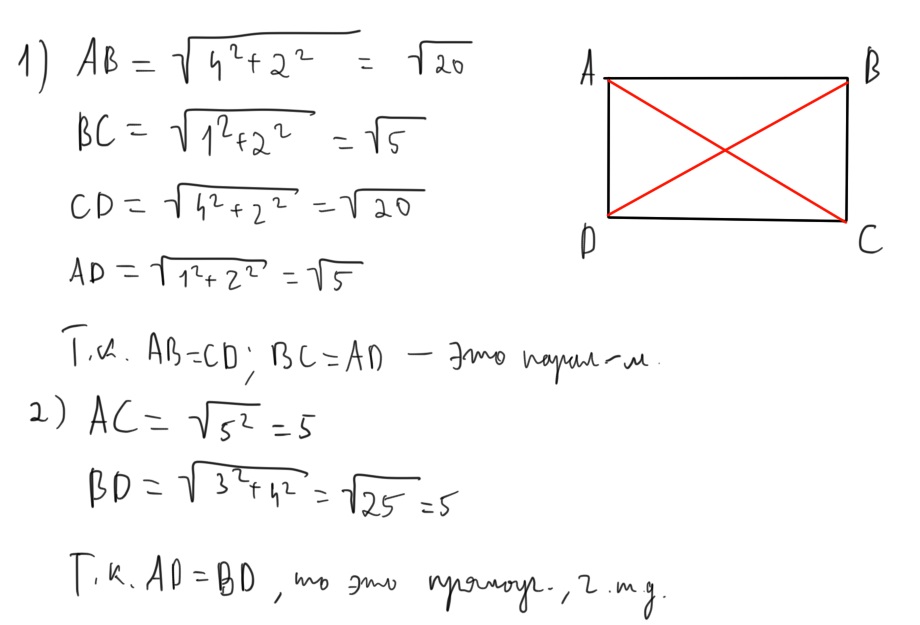 1) AB = √(4²+2²) = √20
BC = √(1²+2²) = √5
CD = √(4²+2²) = √20
AD = √(1²+2²) = √5
Т.к. AB=CD; BC=AD – это парал-м.
2) AC = √(5²) = 5
BD = √(3²+4²) = √25 = 5
Т.к. AD=BD, то это прямоуг., ч.т.д.
A B
D C